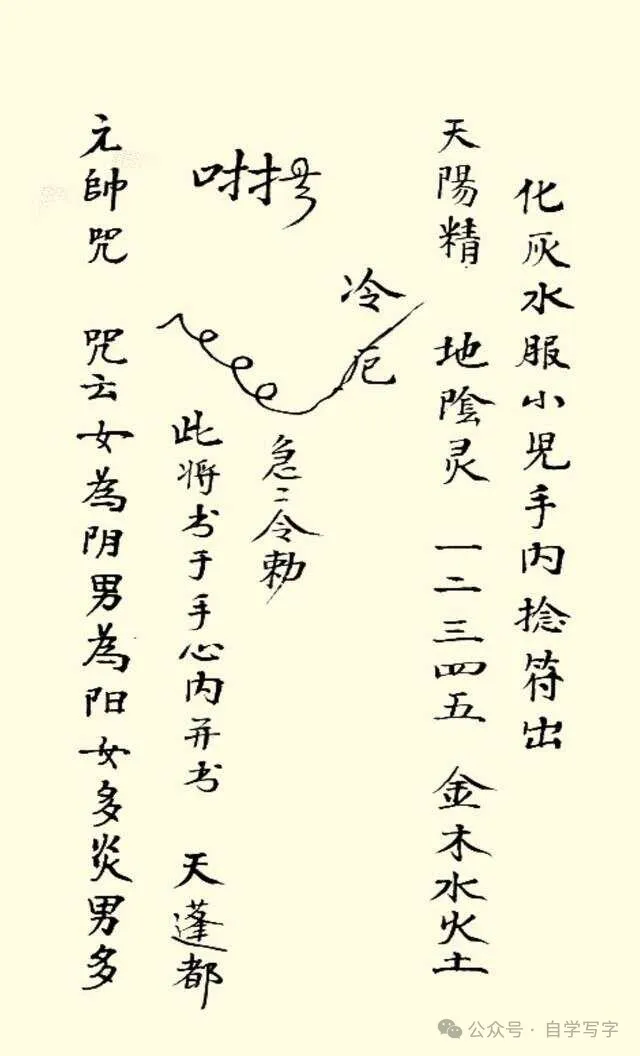 化灰水服小児手内捻符出
天陽精 地陰灵 一二三四五 金木水火土
冷厄
急〻令勅
此将书于手心内并书 天蓬都
元帥咒 咒云女為阴男為阳女多炎男多
公众号·自学写字